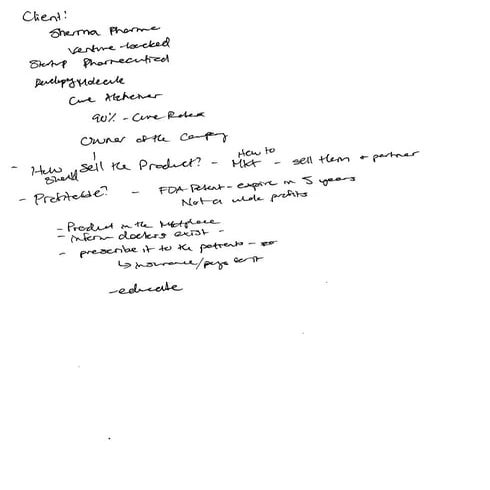 Client:
Sherma Pharma
Venture-backed
Startup Pharmaceutical
Developing Molecule
Cure Alzheimer
90% - Cure Rate
Owner of the Company
- How should sell the Product? - How to Mkt - sell them + partner
- Profitable? - FDA Patent - expire in 5 years
Not a whole profits
- Product in the Mktplace
- inform doctors exist -
- prescribe it to the patients -
↳ insurance/pays for it
- educate